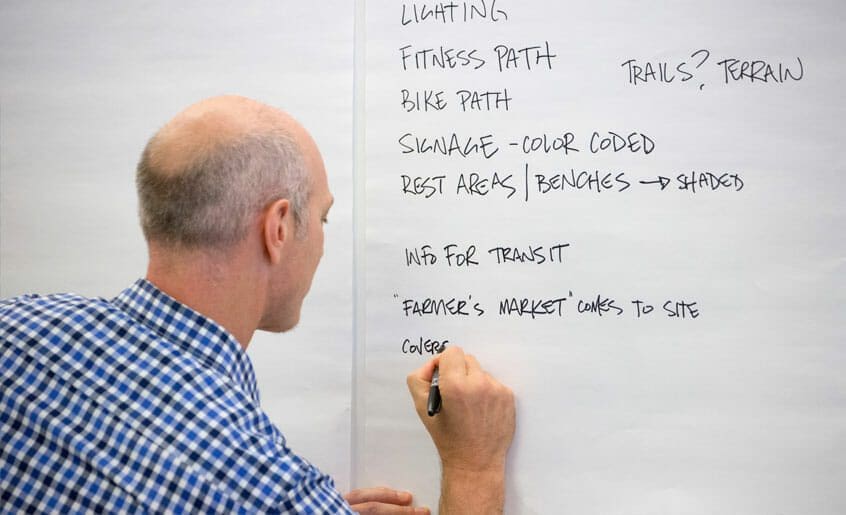 LIGHTING
FITNESS PATH
TRAILS? TERRAIN
BIKE PATH
SIGNAGE - COLOR CODED
REST AREAS | BENCHES → SHADED
INFO FOR TRANSIT
"FARMER'S MARKET" COMES TO SITE